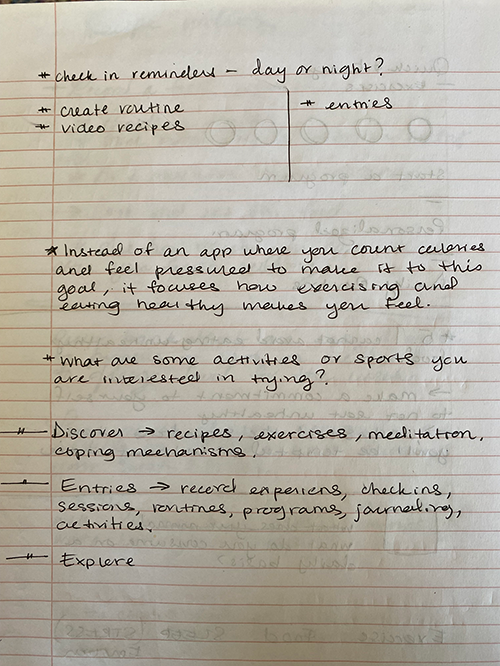 * check in reminders – day or night?
* create routine
* video recipes
* entries
* Instead of an app where you count calories
and feel pressured to make it to this
goal, it focuses how exercising and
eating healthy makes you feel.
* What are some activities or sports you
are interested in trying?
Discover → recipes, exercises, meditation,
coping mechanisms.
Entries → record experiens, check ins,
sessions, routines, programs, journaling,
activities.
Explore